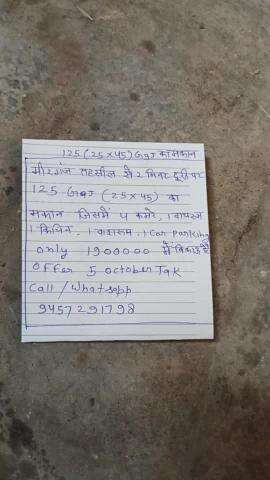 125 (25x45) Gaj का मकान
मीरगंज तहसील से 2 मिनट दूरी पर
125 Gaj (25x45) का
मकान जिसमें 4 कमरे, 1 बाथरूम
1 किचिन, 1 वाशरूम, 1 Car Parking
only 1900000 में बिकाऊ है
offer 5 october Tak
Call/Whatsapp
9457291798